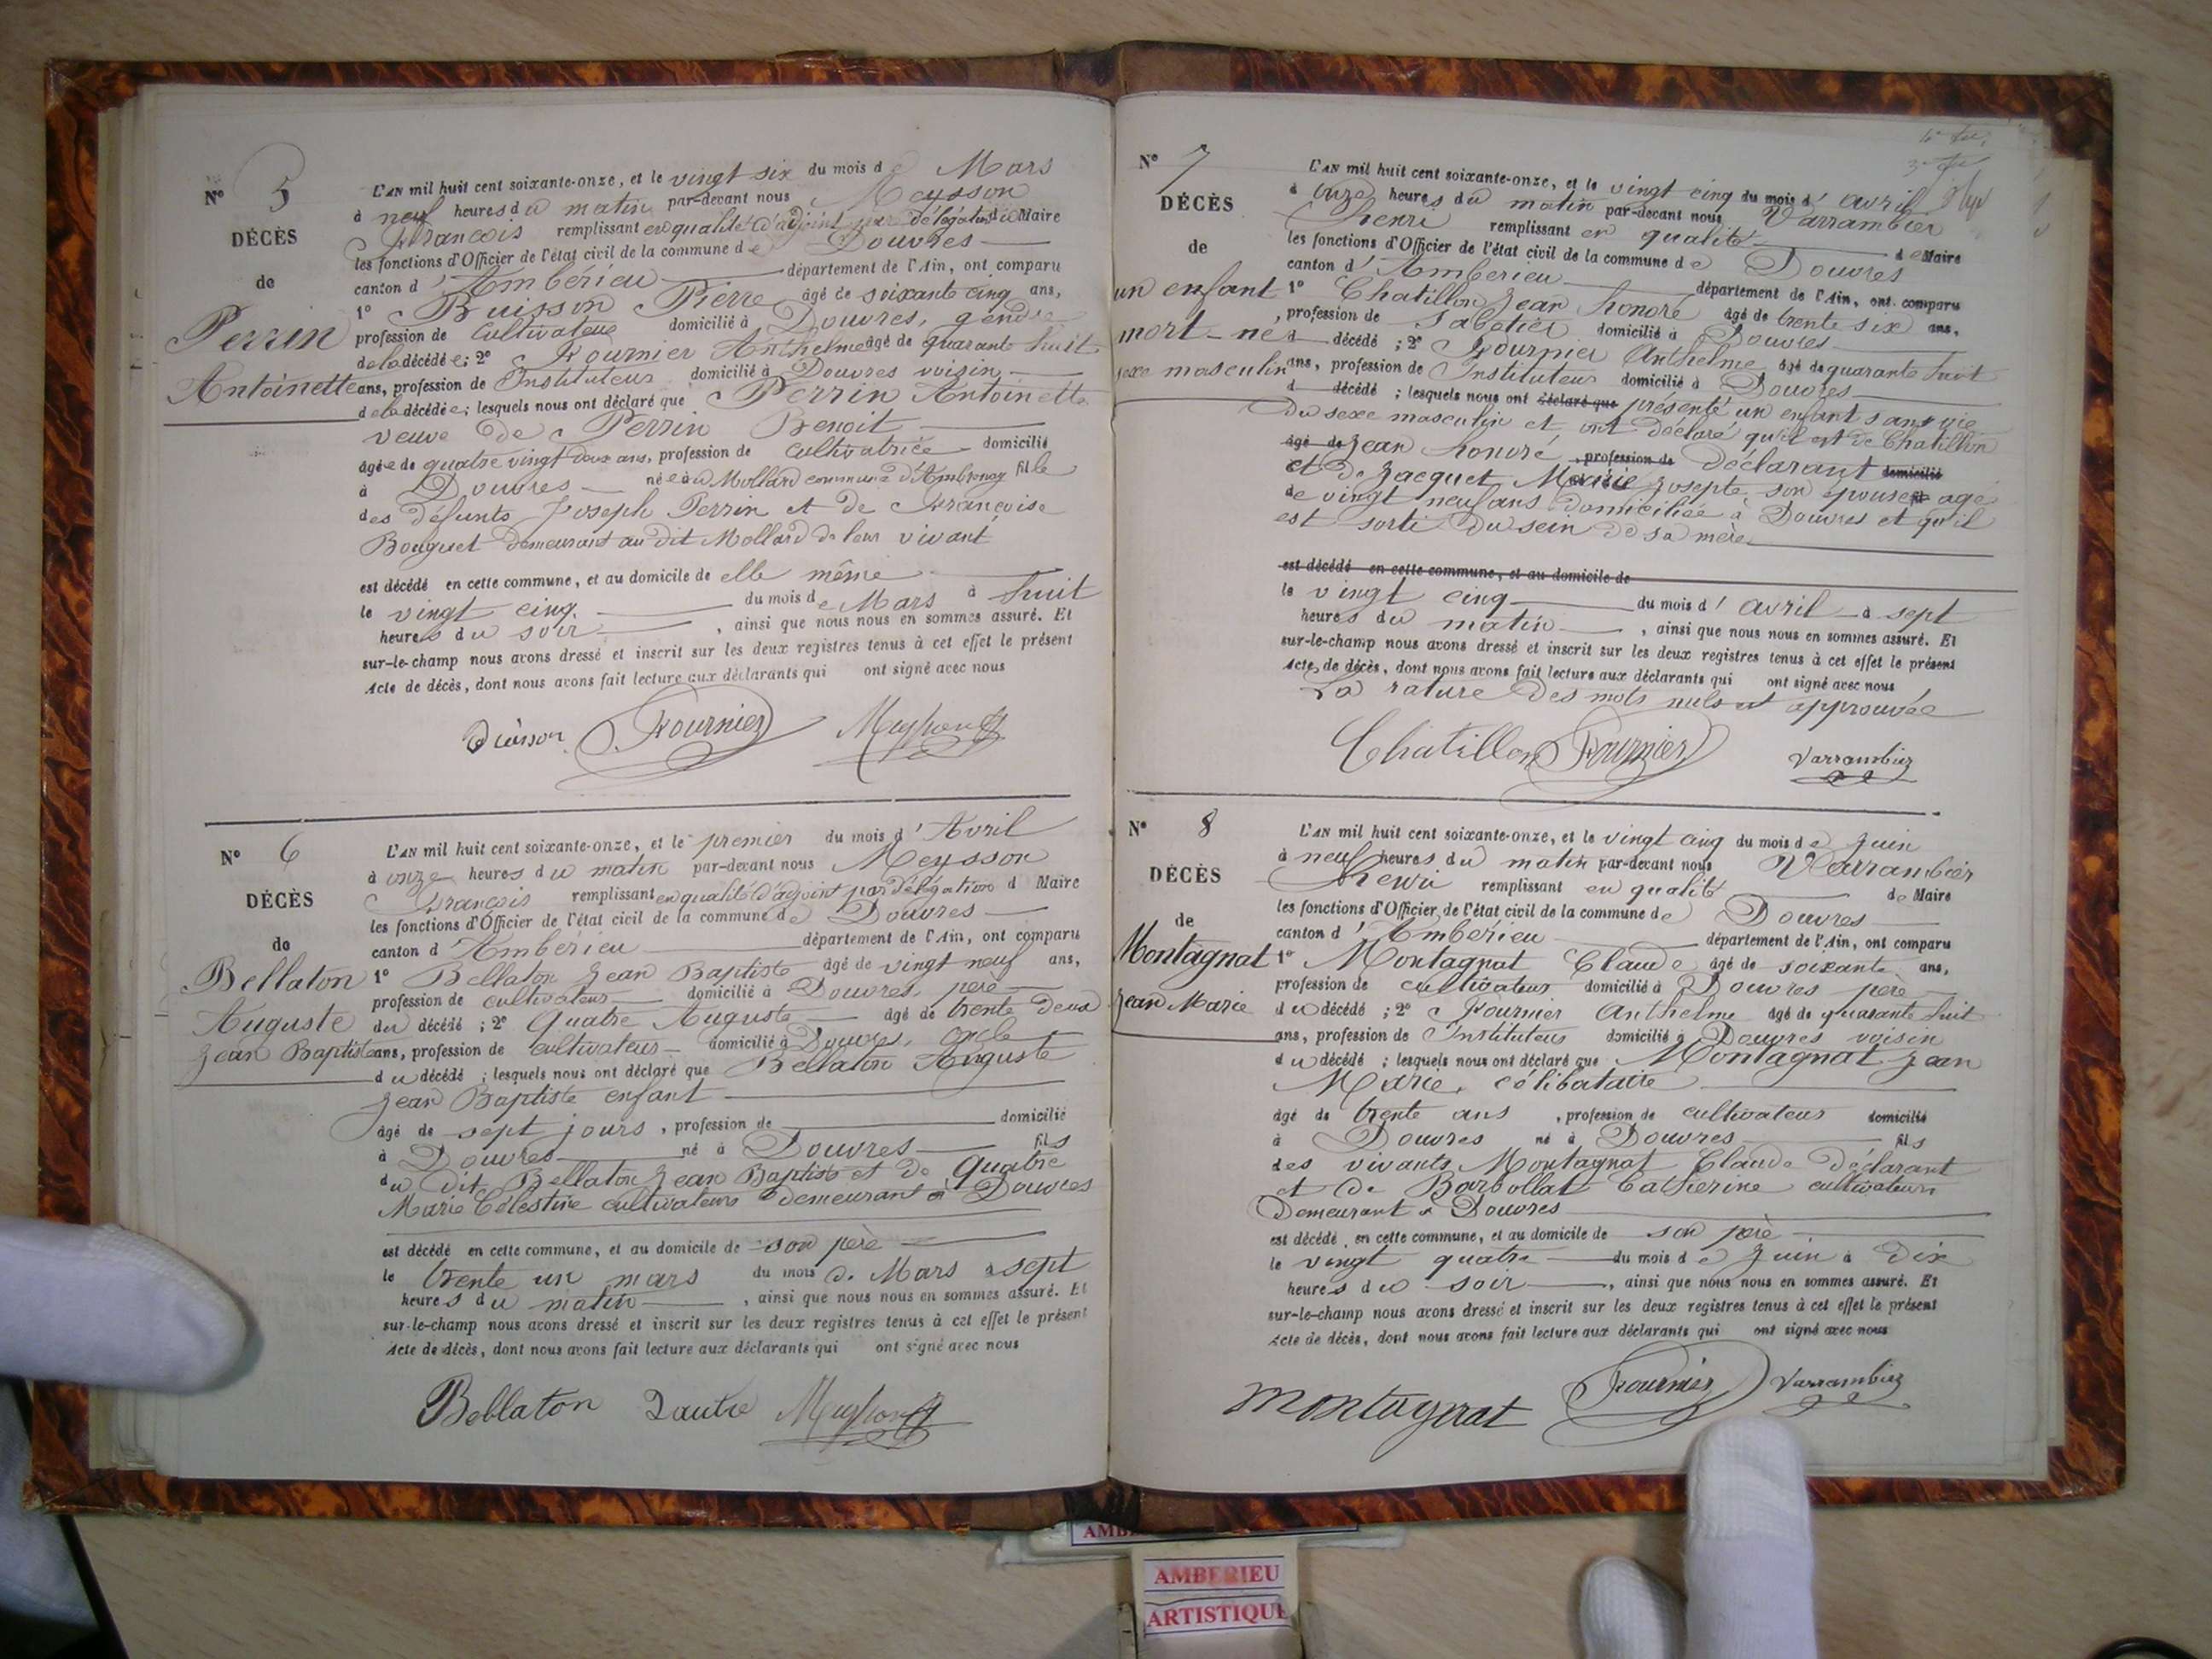 N° 5
DÉCÈS
de
Perrin
Antoinette
L'AN mil huit cent soixante-onze, et le vingt six du mois de Mars
à neuf heures du matin par-devant nous Meysson
François remplissant en qualité d'adjoint par délégation du Maire
les fonctions d'Officier de l'état civil de la commune de Douvres
canton d'Ambérieu département de l'Ain, ont comparu
1° Buisson Pierre âgé de soixante cinq ans,
profession de Cultivateur domicilié à Douvres, gendre
de la décédée; 2° Fournier Anthelme âgé de quarante huit
ans, profession de Instituteur domicilié à Douvres voisin
de la décédée; lesquels nous ont déclaré que Perrin Antoinette
veuve de Perrin Benoit
âgée de quatre vingt deux ans, profession de cultivatrice domicilié
à Douvres née au Mollard commune d'Ambronay fille
des défunts Joseph Perrin et de Françoise
Bouguet demeurant au dit Mollard de leur vivant
est décédé en cette commune, et au domicile de elle même
le vingt cinq du mois de Mars à huit
heures du soir, ainsi que nous nous en sommes assuré. Et
sur-le-champ nous avons dressé et inscrit sur les deux registres tenus à cet effet le présent
Acte de décès, dont nous avons fait lecture aux déclarants qui ont signé avec nous
Buisson Fournier Meysson
N° 6
DÉCÈS
de
Bellaton
Auguste
Jean Baptiste
L'AN mil huit cent soixante-onze, et le premier du mois d'Avril
à onze heures du matin par-devant nous Meysson
François remplissant en qualité d'adjoint par délégation d Maire
les fonctions d'Officier de l'état civil de la commune de Douvres
canton d'Ambérieu département de l'Ain, ont comparu
1° Bellaton Jean Baptiste âgé de vingt neuf ans,
profession de cultivateur domicilié à Douvres, père
du décédé; 2° Quatre Auguste âgé de trente deux
ans, profession de cultivateur domicilié à Douvres, oncle
du décédé; lesquels nous ont déclaré que Bellaton Auguste
Jean Baptiste enfant
âgé de sept jours, profession de domicilié
à Douvres né à Douvres fils
du dit Bellaton Jean Baptiste et de Quatre
Marie Célestine cultivateurs demeurant à Douvres
est décédé en cette commune, et au domicile de son père
le trente un mars du mois de Mars à sept
heures du matin, ainsi que nous nous en sommes assuré. Et
sur-le-champ nous avons dressé et inscrit sur les deux registres tenus à cet effet le présent
Acte de décès, dont nous avons fait lecture aux déclarants qui ont signé avec nous
Bellaton Quatre Meysson
N° 7
DÉCÈS
de
un enfant
mort-né
sexe masculin
L'AN mil huit cent soixante-onze, et le vingt cinq du mois d'avril
à onze heures du matin par-devant nous Varrambier
Henri remplissant en qualité de Maire
les fonctions d'Officier de l'état civil de la commune de Douvres
canton d'Amberieu département de l'Ain, ont comparu
1° Chatillon Jean honoré âgé de trente six ans,
profession de Sabotier domicilié à Douvres
d décédé; 2° Fournier Anthelme âgé de quarante huit
ans, profession de Instituteur domicilié à Douvres
d décédé; lesquels nous ont déclaré que présenté un enfant sans vie
du sexe masculin et ont déclaré qu'il est de Chatillon
âgé de Jean honoré, profession de Déclarant domicilié
et de Jacquet Marie Josepte son épouse agé
de vingt neuf ans domiciliée à Douvres et qu'il
est sorti du sein de sa mère
est décédé en cette commune, et au domicile de
le vingt cinq du mois d'avril à sept
heures du matin, ainsi que nous nous en sommes assuré. Et
sur-le-champ nous avons dressé et inscrit sur les deux registres tenus à cet effet le présent
Acte de décès, dont nous avons fait lecture aux déclarants qui ont signé avec nous
La rature des mots nuls est approuvée
Chatillon Fournier Varrambier
N° 8
DÉCÈS
de
Montagnat
Jean Marie
L'AN mil huit cent soixante-onze, et le vingt cinq du mois de Juin
à neuf heures du matin par-devant nous Varrambier
Henri remplissant en qualité de Maire
les fonctions d'Officier de l'état civil de la commune de Douvres
canton d'Ambérieu département de l'Ain, ont comparu
1° Montagnat Claude âgé de soixante ans,
profession de cultivateur domicilié à Douvres père
du décédé; 2° Fournier Anthelme âgé de quarante huit
ans, profession de Instituteur domicilié à Douvres voisin
du décédé; lesquels nous ont déclaré que Montagnat Jean
Marie, célibataire
âgé de trente ans, profession de cultivateur domicilié
à Douvres né à Douvres fils
des vivants Montagnat Claude Déclarant
et de Barbollat Catherine cultivateurs
Demeurant à Douvres
est décédé en cette commune, et au domicile de son père
le vingt quatre du mois de Juin à Dix
heures du soir, ainsi que nous nous en sommes assuré. Et
sur-le-champ nous avons dressé et inscrit sur les deux registres tenus à cet effet le présent
Acte de décès, dont nous avons fait lecture aux déclarants qui ont signé avec nous
Montagnat Fournier Varrambier
AMBERIEU
ARTISTIQUE